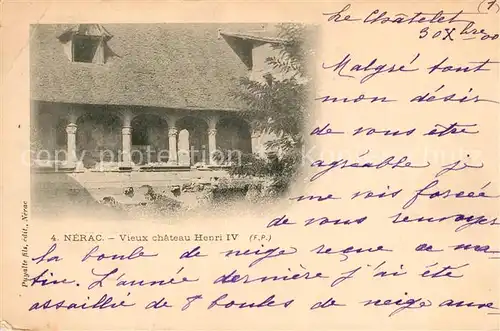 (1
Le Châtelet
30 Xbre 00
Malgré tout
mon désir
de vous être
agréable je
me vois forcée
de vous renvoyer
la boule de neige reçue ce ma-
tin. L'année dernière j'ai été
assaillie de 8 boules de neige avec
4. NÉRAC. - Vieux château Henri IV (F.P.)
Puyalte fils, édit., Nérac